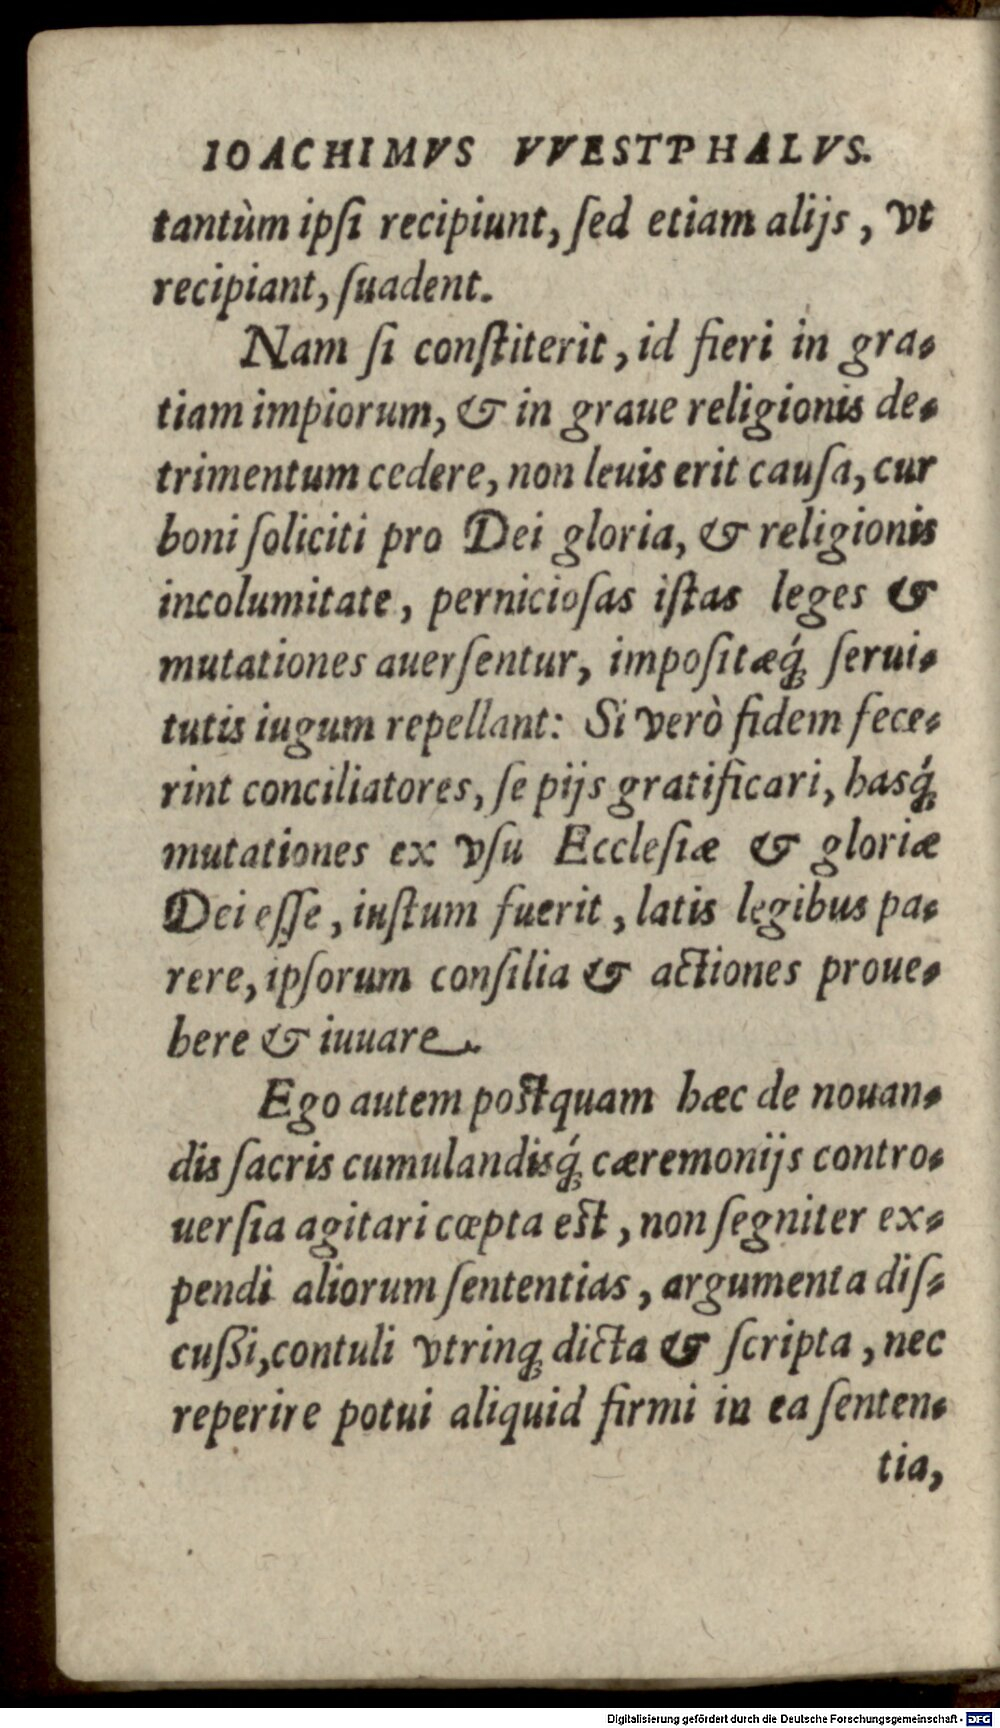 IOACHIMVS VVESTPHALVS.
tantùm ipſi recipiunt, ſed etiam alijs, vt
recipiant, ſuadent.
Nam ſi conſtiterit, id fieri in gra-
tiam impiorum, & in graue religionis de-
trimentum cedere, non leuis erit cauſa, cur
boni ſoliciti pro Dei gloria, & religionis
incolumitate, pernicioſas iſtas leges &
mutationes auerſentur, impoſitæq́; ſerui-
tutis iugum repellant: Si verò fidem fece-
rint conciliatores, ſe pijs gratificari, hasq́;
mutationes ex vſu Eccleſiæ & gloriæ
Dei eſſe, iuſtum fuerit, latis legibus pa-
rere, ipſorum conſilia & actiones proue-
here & iuuare.
Ego autem poſtquam hæc de nouan-
dis ſacris cumulandisq́; cæremonijs contro-
uerſia agitari cœpta eſt, non ſegniter ex-
pendi aliorum ſententias, argumenta diſ-
cußi, contuli vtrinq; dicta & ſcripta, nec
reperire potui aliquid firmi in ea ſenten-
tia,
Digitalisierung gefördert durch die Deutsche Forschungsgemeinschaft - DFG